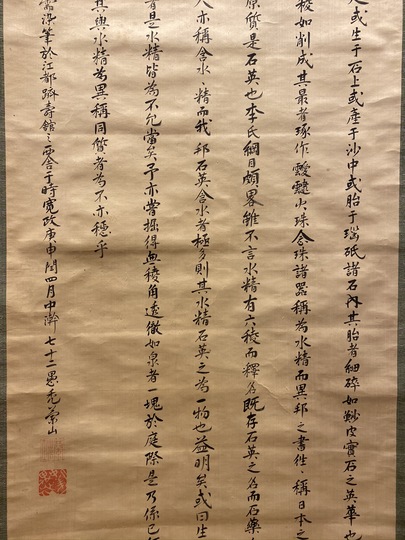 或生于石上或產于沙中或胎于瑙砥諸石内其胎者細碎如魦皮實石之英華也
稜如削成其最者琢作靉靆火珠念珠諸器稱為水精而異邦之書往々稱日本之
原質是石英也李氏綱目頗畧雖不言水精有六稜而釋名既存石英之名而石藥
人亦稱含水精而我邦石英含水者極多則其水精石英之為一物也益明矣或曰生
者是水精皆為不允當矣予亦嘗掘得無稜角透徹如泉者一塊於庭際是乃係已
其與水精為異稱同質者為不亦穩乎
筆於江都躋壽館之西舎于時寛政庚申閏四月中澣七十二愚禿蘭山